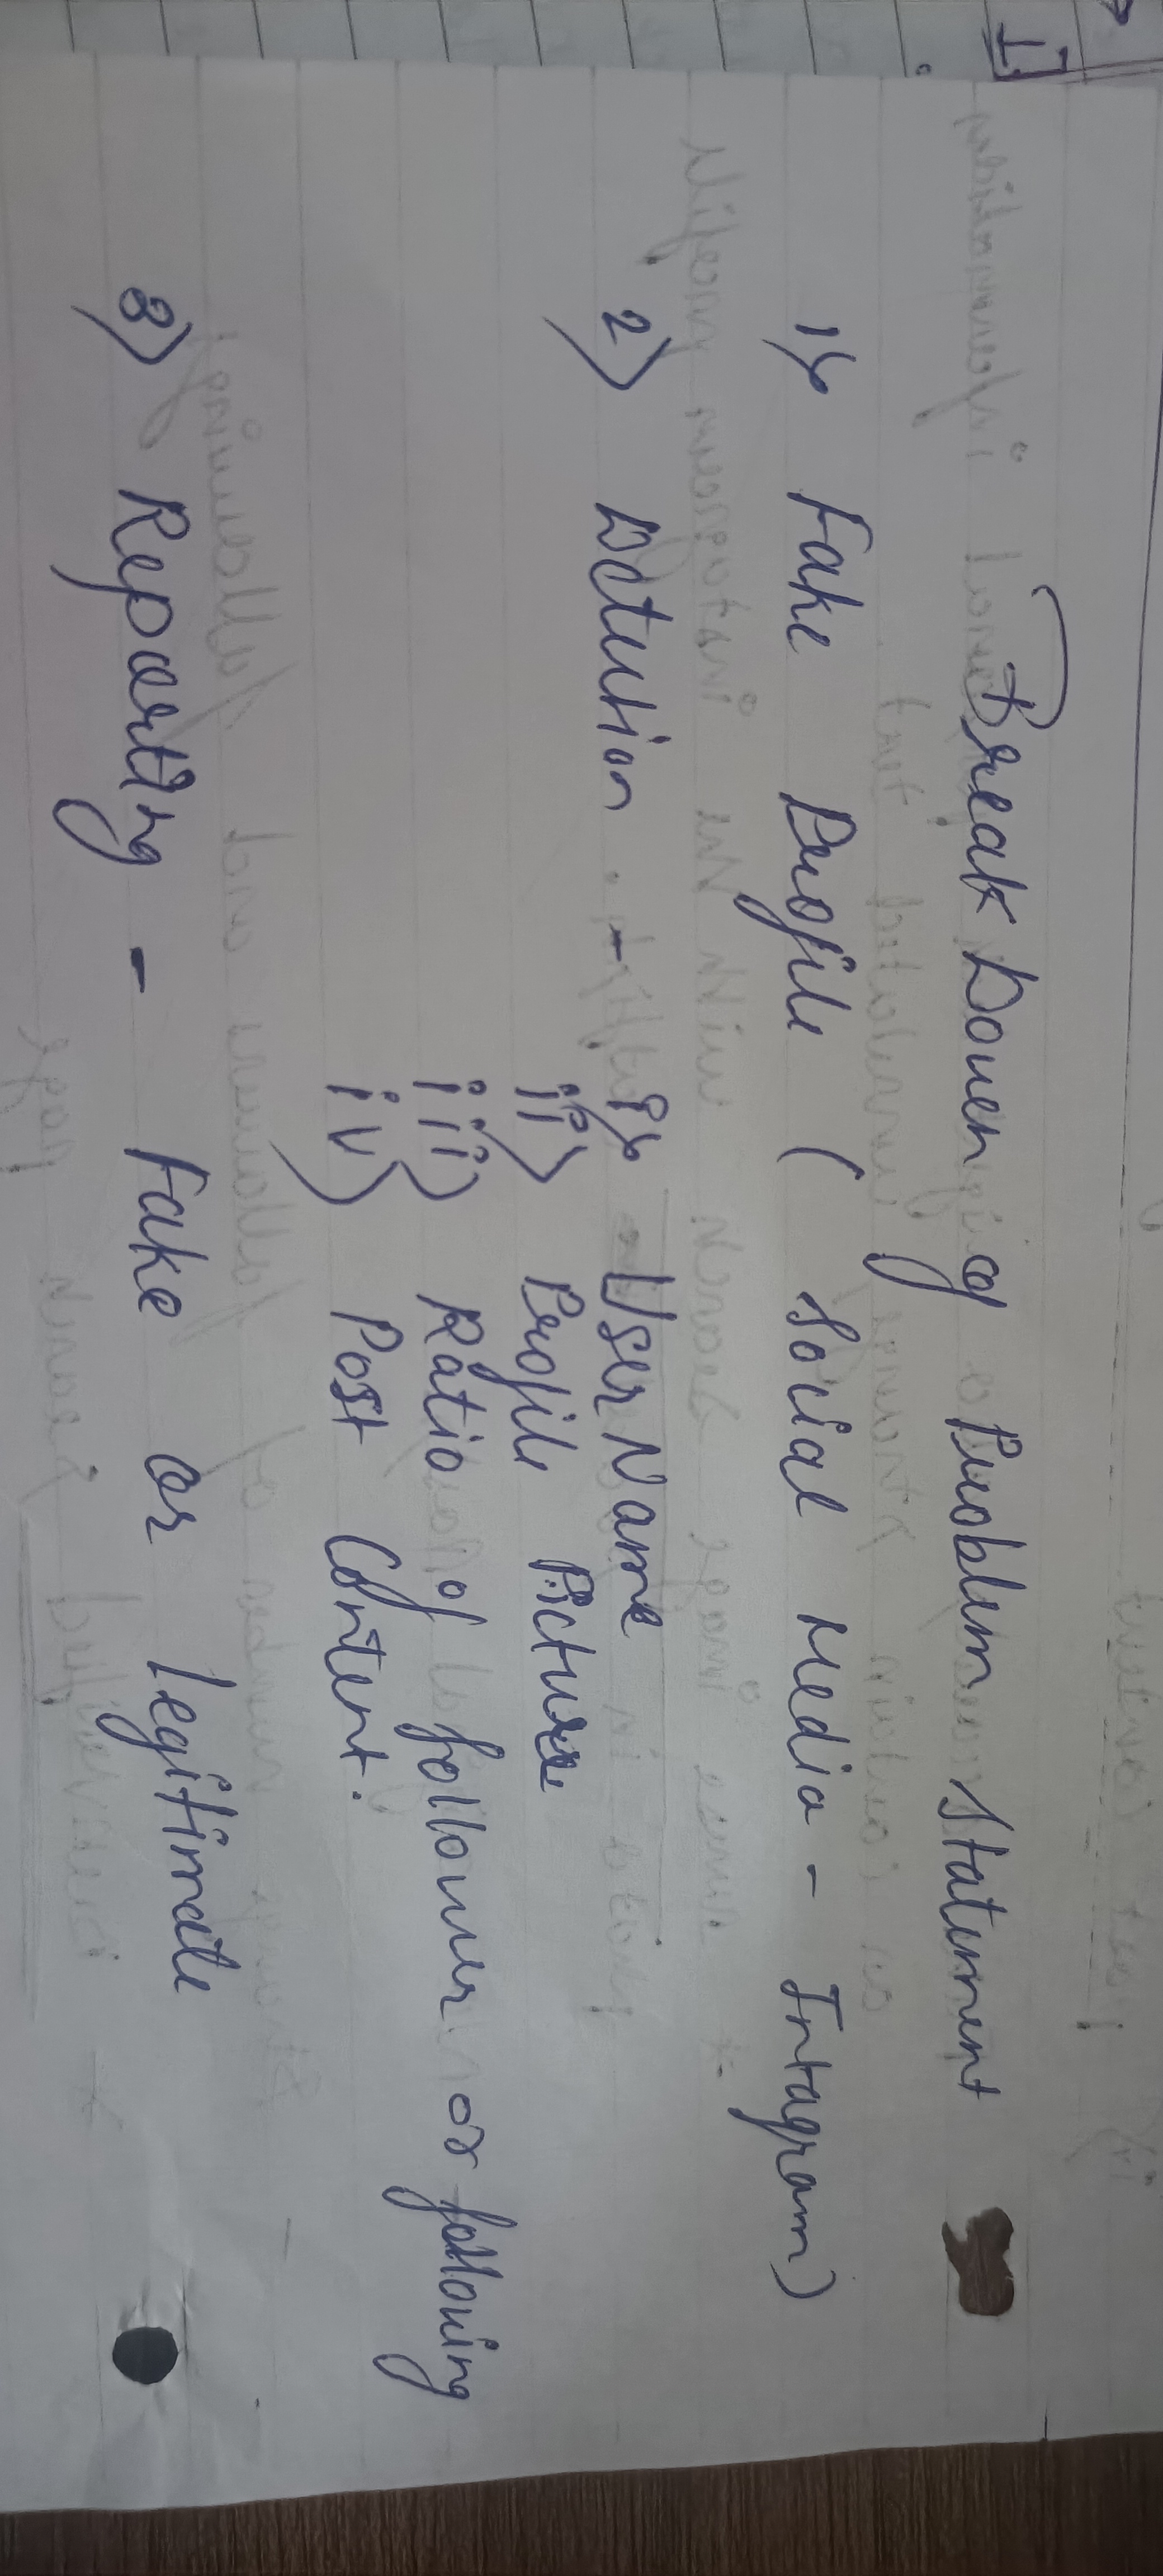 Break Down of Problem Statement
1) Fake Profile ( Social Media - Intagram)
2) Detection - i) UserName
ii) Profile Picture
iii) Ratio of follower or following
iv) Post Content.
3) Reporting - Fake or legitimate